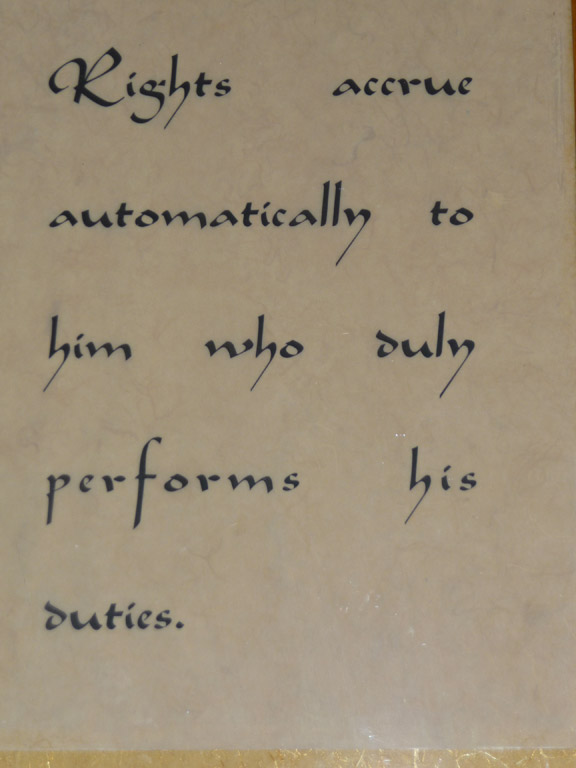 Rights accrue
automatically to
him who duly
performs his
duties.